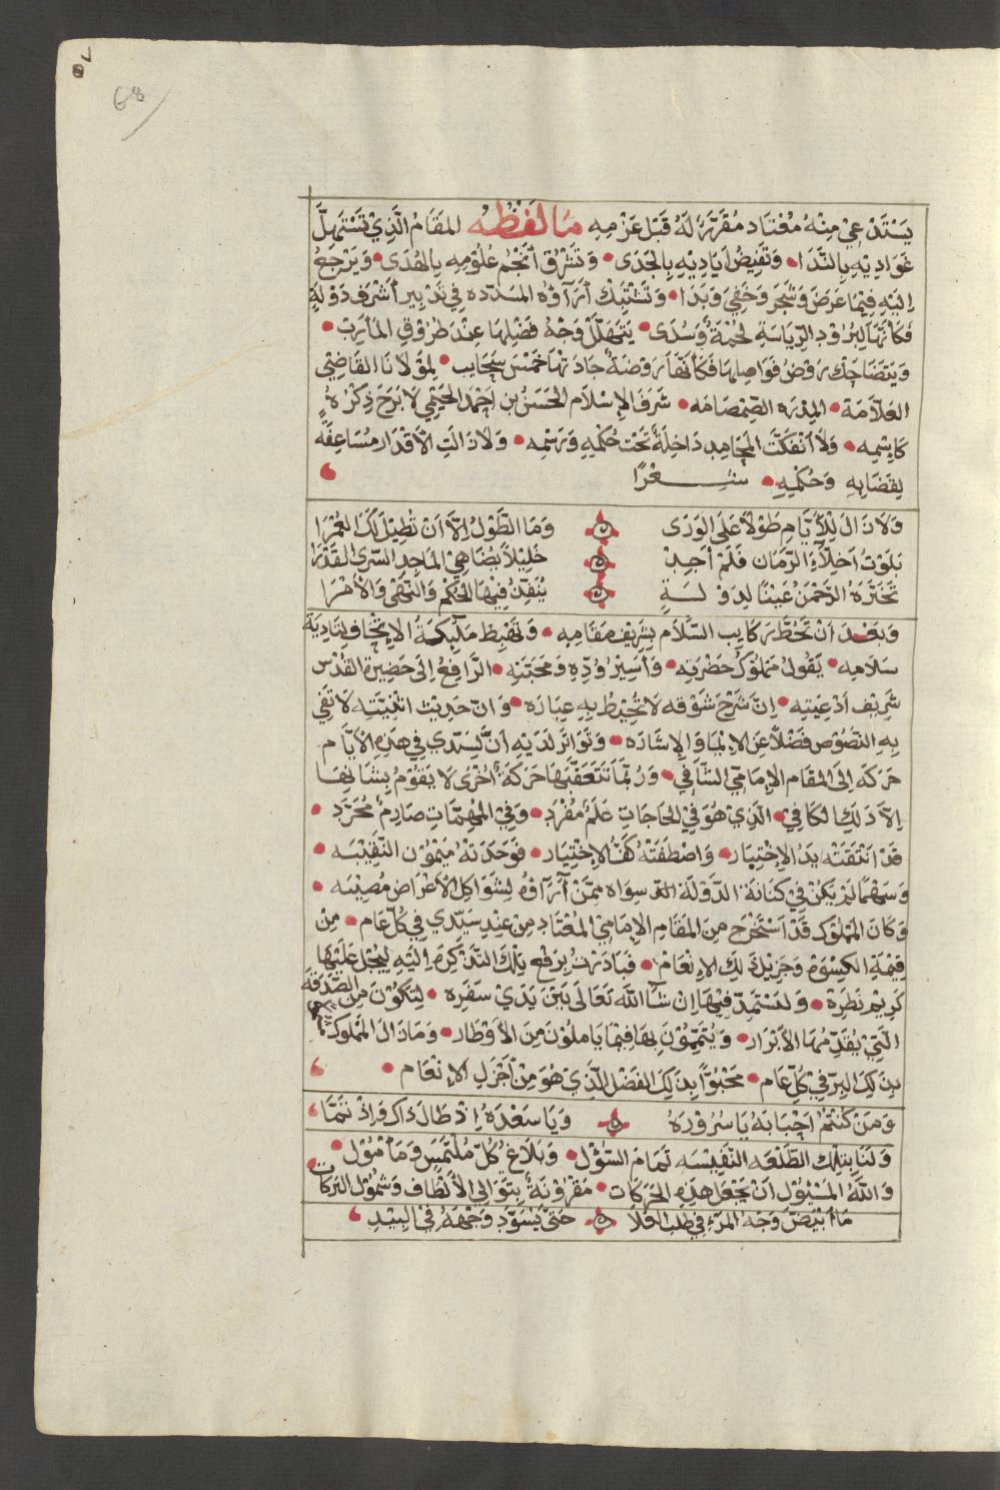 68
يَسْتَدْعِي مِنْهُ مُعْتَاد مُقَرَّرٌ لَهُ قَبْلَ عَزْمِهِ مَا لَفْظُهُ المَقَامُ الَّذِي تَسْتَهِلُّ
غَوَادِيْهِ بِالنَّدَا • وَتَفِيْضُ اَيَادِيْهِ بِالجَدَى • وَتَشْرُقُ أَنْجُمُ عُلُوْمِهِ بِالهُدَى • وَيَرْجِعُ
اِلَيْهِ فِيْمَا عَرَضَ وَشَجَرَ وَخَفِيَ وَبَدَا • وَتَشْتَبِكُ أَرَآؤُهُ المسَدّده فِي تَدْبِيرِ أَشْرَف دَوْلَةٍ
فَكَأَنَّهَا لِبُرُوْدِ الرِّيَاسَةِ لحْمَةٌ وَسُدَى • يَتَهَلَّلُ وَجْهُ فَضْلِهَا عِنْدَ طُرُوْقِ المَأرِبِ •
وَيَتَضَاحَكُ رَوْضُ فَوَاصِلِهَا فَكَأَنَّهَا رَوْضَةٌ جَادَتْهَا خَمْسُ سَحَايب • لِمَوْلَانَا القَاضِي
العَلَّامَة • المِدْرَه الصِّمْصَامَه • شَرَفِ الإِسْلَام الحَسَنُ بن اَحْمَد الحَيْمِي لَا بَرَحَ ذِكْرُهُ
كَاِسْمِه • وَلَا اَنْفَكَّت المَحَامِد دَاخِلَةً تَحْت حُكْمِهِ وَرَسْمِه • وَلَا زَالَتِ الأَقْدَار مُسَاعِفَه
لِقَضَايهِ وَحُكْمِهِ • شِعْرًا
وَلَا زَالَ لِلأَيَّامِ طَوْلاً عَلَى الوَرَى وَمَا الطَّوْلُ اِلَّا اَنْ تُطِيْلَ لَكَ العُمْرَا
بَلَوْتُ اَخِلّآءِ الزَّمَان فَلَمْ أَجِدْ خَلِيْلاً يُضَاهِي المَاجِدَ السّرِيَ القَدْرَا
تَخَيَّرَهُ الرَّحْمَنُ عَيْنًا لِدَوْلَـــةٍ يُنَفِّذُ فِيْهَا الحُكْمَ وَالنَّهْيَ وَالأَمْرَا
وَبَعْدَ اَنْ تَحُطَّ رَكَايِب السَّلَام بِشَرِيْفِ مَقَامِهِ • وَتَهْبِطَ مَلَئِكَةُ الإِتْحَافِ بِتَادِيَةِ
سَلَامِه • يَقُوْلُ مَمْلُوْكُ حَضْرَتِه • وَأَسِيْرُ وُدِّهِ وَمَحَبَّتِهِ • الرَّافِعُ اِلَى حَضِيْرَةِ القُدْسِ
شَرِيْف اَدْعِيَتِه • اِنَّ شَرْحَ شَوْقه لَا تُحِيْطُ بِهِ عِبَارَه • وَانّ حَدِيْثَ لَا تَفِي
بِهِ النُّصُوْص فَضْلاً عَنِ الإِيْمَا وَالإِشَارَه • وَتَوَاتَرَ لَدَيْهِ اَنَّ لِسَيّدِي فِي هَذِهِ الأَيَّامِ
حَرَكَه اِلَى المَقَام الإِمَامِيّ الشَّافِي • وَرُبَّمَا تَتَعَقَّبُهَا حَرَكَةٌ اُخْرَى لَا يَقُوْمُ بِشَانِهَا
اِلَّا ذَلِكَ الكَافِي • الَّذِي هُوَ فِي الحَاجَاتِ عَلَمٌ مُفْرَد • وَفِي المُهِمَّاتِ صَارِمٌ مُجَرَّد •
قَدْ انْتَقَتْهُ يَدُ الإِخْتِبَار • وَاصْطَفَتْهُ كَفُّ الإِخْتِيَار • فَوَجَدَتْهُ مَيْمُوْنَ النَّقِيْبَه •
وَسَهْمًا لَمْ يَكُنْ فِي كِنَانَةِ الدَّوْلَة سِوَاه مِمَّنْ أَرَآؤُهُ لِشَوَاكِلِ الأَغْرَاضِ مُصِيْبَه •
وَكَانَ المَمْلُوك قَدْ اَسْتَخْرَجَ مِنَ المَقَامِ الإِمَامِي المُعْتَاد مِنْ عِنْدِ سَيّدِي فِي كُلِّ عَام • مِنْ
قِيْمَةِ الكِسْوَةِ وَجَزِيْلِ ذَلِكَ الإِنْعَام • فَبَادَرْتُ بِرَفْعِ تِلْكَ التَّذْكِرَه اِلَيْهِ لِيُجِيْل عَلَيْهَا
كَرِيْم نَظَرِه • وَلِيَسْتَمِدَّ فِيْهَا اِنْ شَآ اللَّه تَعَالَى بَيْنَ يَدَيْ سَفَرِه • لِتَكُوْنَ مِن الصَّدَقَة
الَّتِي يُقَدِّمُهَا الأَبْرَار • وَيُتَمِّمُوْنَ بِهَا فِيْمَا يَامِلُوْنَ مِنَ الأَوْطَار • وَمَا زَالَ المَمْلُوك
بِذَلِكَ البِرِّ فِي كُلِّ عَام • مَحْبُوّاً بِذَلِكَ الفَضْلِ الَّذِي هُوَ مِنْ أَجْزَلِ الإِنْعَام •
وَمَنْ كُنْتُمْ اَحْبَابَهُ يَا سُرُوْرَهُ وَيَا سَعْدَهُ اِنْ طَالَ ذَاكَ وَاِنْ تَمَّا
وَلَنَا بِتِلْكَ الطَّلْعَه النَّفِيْسَه تَمَامُ السُّؤْل • وَبَلَاغُ كُلِّ مُلْتَمَسٍ وَمَأمُوْل •
وَاللَّهُ المَسْئوْلُ اَنْ يَجْعَلَ هَذِهِ الحَرَكَات • مَقْرُوْنَةً بِتَوَالِي الأَلْطَافِ وَشُمُوْلِ البَرَكَات
مَا اَبْيَضَّ وَجْهُ المَرْءِ فِي طَلَبِ العُلَا حَتَّى يُسَوَّد وَجْهُهُ فِي البِيْدِ